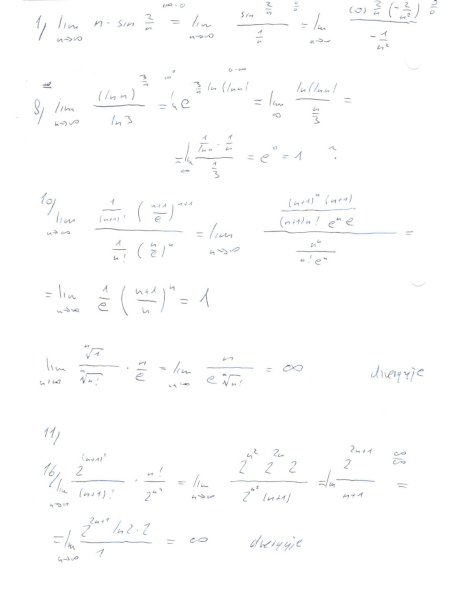 1) lim n→∞ n · sin 2/n = lim n→∞ (sin 2/n)/(1/n) = lim n→∞ (cos 2/n (-2/n²))/(-1/n²)
8) lim n→∞ (ln n)^(3/n) / ln 3 = e^(3/n ln(ln n)) = lim ∞ ln(ln n)/(n/3) =
= lim ∞ (1/ln n · 1/n)/(1/3) = e⁰ = 1 ?
10) lim n→∞ (1/(n+1)! ((n+1)/e)^(n+1))/(1/n! (n/e)^n) = lim n→∞ (((n+1)^n (n+1))/((n+1) n! e^n e))/(n^n/(n! e^n)) =
= lim n→∞ 1/e ((n+1)/n)^n = 1
lim n→∞ ⁿ√1/ⁿ√n! · n/e = lim n→∞ n/(e ⁿ√n!) = ∞
11)
16) lim n→∞ 2^((n+1)²)/(n+1)! · n!/2^(n²) = lim n→∞ (2^(n²) 2^(2n) 2)/(2^(n²) (n+1)) = lim 2^(2n+1)/(n+1) ∞/∞ =
= lim n→∞ (2^(2n+1) ln2 · 2)/1 = ∞